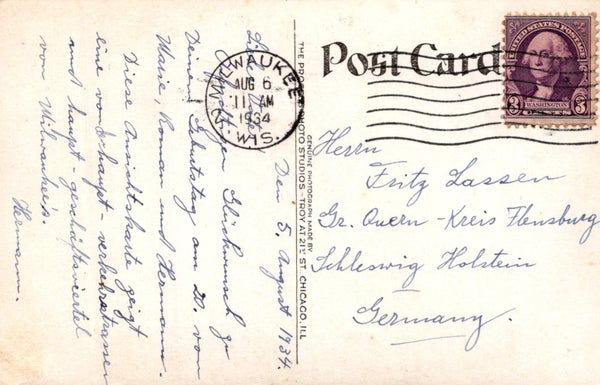 Post Card
UNITED STATES POSTAGE
WASHINGTON
3 3
MILWAUKEE
AUG 6
11 AM
1934
WIS.
THE PRO PHOTO STUDIOS - TROY AT 21ST ST. CHICAGO, ILL
GENUINE PHOTOGRAPH MADE BY
Den 5. August 1934.
Glückwunsch zu
Deinem Geburtstag am 20. von
Marie, Roman und Hermann.
Diese Ansichtskarte zeigt
eine von haupt-verkehrstrassen
und haupt-geschäftsviertel
von Milwaukee.
Hermann.
Herrn
Fritz Lassen
Gr. Quern - Kreis Flensburg
Schleswig Holstein
Germany.